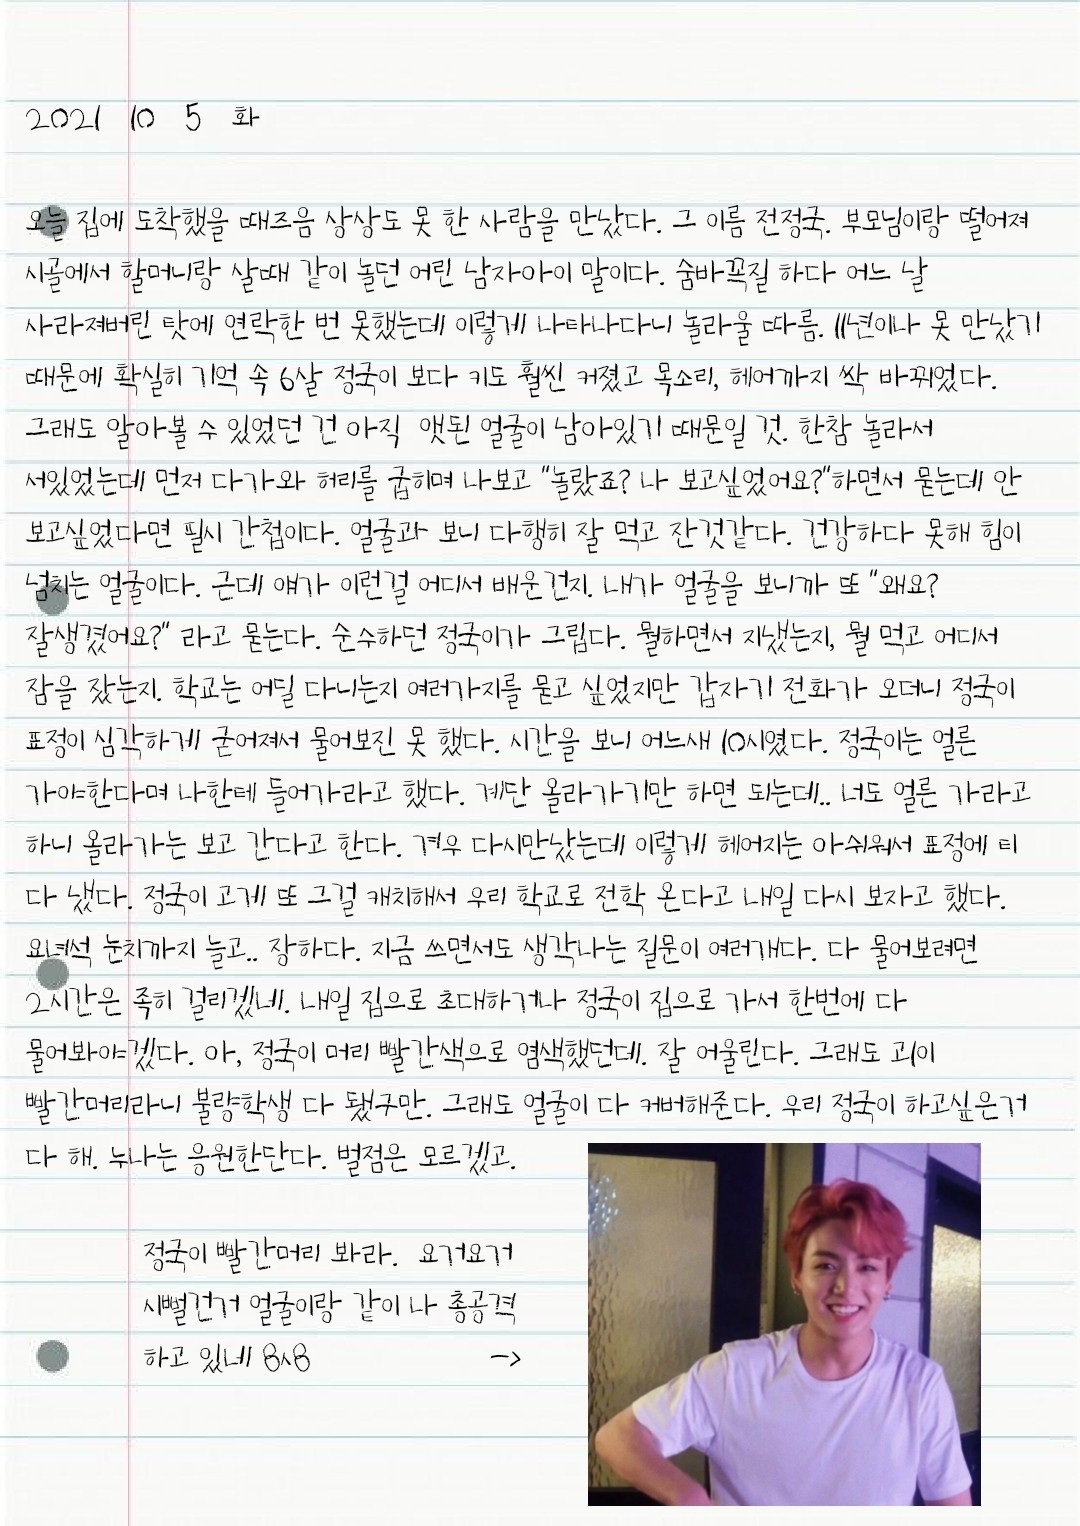 2021 10 5 화
오늘 집에 도착했을 때즈음 상상도 못 한 사람을 만났다. 그 이름 전정국. 부모님이랑 떨어져
시골에서 할머니랑 살때 같이 놀던 어린 남자아이 말이다. 숨바꼭질 하다 어느 날
사라져버린 탓에 연락한 번 못했는데 이렇게 나타나다니 놀라울 따름. 11년이나 못 만났기
때문에 확실히 기억 속 6살 정국이 보다 키도 훨씬 커졌고 목소리, 헤어까지 싹 바뀌었다.
그래도 알아볼 수 있었던 건 아직 앳된 얼굴이 남아있기 때문일 것. 한참 놀라서
서있었는데 먼저 다가와 허리를 굽히며 나보고 "놀랐죠? 나 보고싶었어요?"하면서 묻는데 안
보고싶었다면 필시 간첩이다. 얼굴과 보니 다행히 잘 먹고 잔것같다. 건강하다 못해 힘이
넘치는 얼굴이다. 근데 얘가 이런걸 어디서 배운건지. 내가 얼굴을 보니까 또 "왜요?
잘생겼어요?" 라고 묻는다. 순수하던 정국이가 그립다. 뭘하면서 지냈는지, 뭘 먹고 어디서
잠을 잤는지. 학교는 어딜 다니는지 여러가지를 묻고 싶었지만 갑자기 전화가 오더니 정국이
표정이 심각하게 굳어져서 물어보진 못 했다. 시간을 보니 어느새 10시였다. 정국이는 얼른
가야한다며 나한테 들어가라고 했다. 계단 올라가기만 하면 되는데.. 너도 얼른 가라고
하니 올라가는 보고 간다고 한다. 겨우 다시만났는데 이렇게 헤어지는 아쉬워서 표정에 티
다 냈다. 정국이 고게 또 그걸 캐치해서 우리 학교로 전학 온다고 내일 다시 보자고 했다.
요녀석 눈치까지 늘고.. 장하다. 지금 쓰면서도 생각나는 질문이 여러개다. 다 물어보려면
2시간은 족히 걸리겠네. 내일 집으로 초대하거나 정국이 집으로 가서 한번에 다
물어봐야겠다. 아, 정국이 머리 빨간색으로 염색했던데. 잘 어울린다. 그래도 고1이
빨간머리라니 불량학생 다 됐구만. 그래도 얼굴이 다 커버해준다. 우리 정국이 하고싶은거
다 해. 누나는 응원한단다. 벌점은 모르겠고.
정국이 빨간머리 봐라. 요거요거
시뻘건거 얼굴이랑 같이 나 총공격
하고 있네 8ㅅ8 →